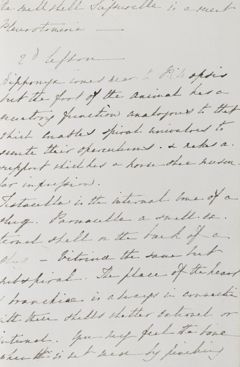 the well shell is a most
Pleurotomaria —
2d Lesson
Hipponyx comes near to Pileopsis
but the foot of the animal has a
secretory function analogous to that
which enables spiral univalves to
secrete their operculums. & makes a
support which has a horse shoe muscu
lar impression.
Testacella is the internal bone of a
slug. Parmacella a small ex-
ternal shell on the back of a
— Vitrina the same but
subspiral. The place of the heart
& branchiae is always in connection
with these shells whether external or
internal. You may feel the bone
when it is not used by pinching